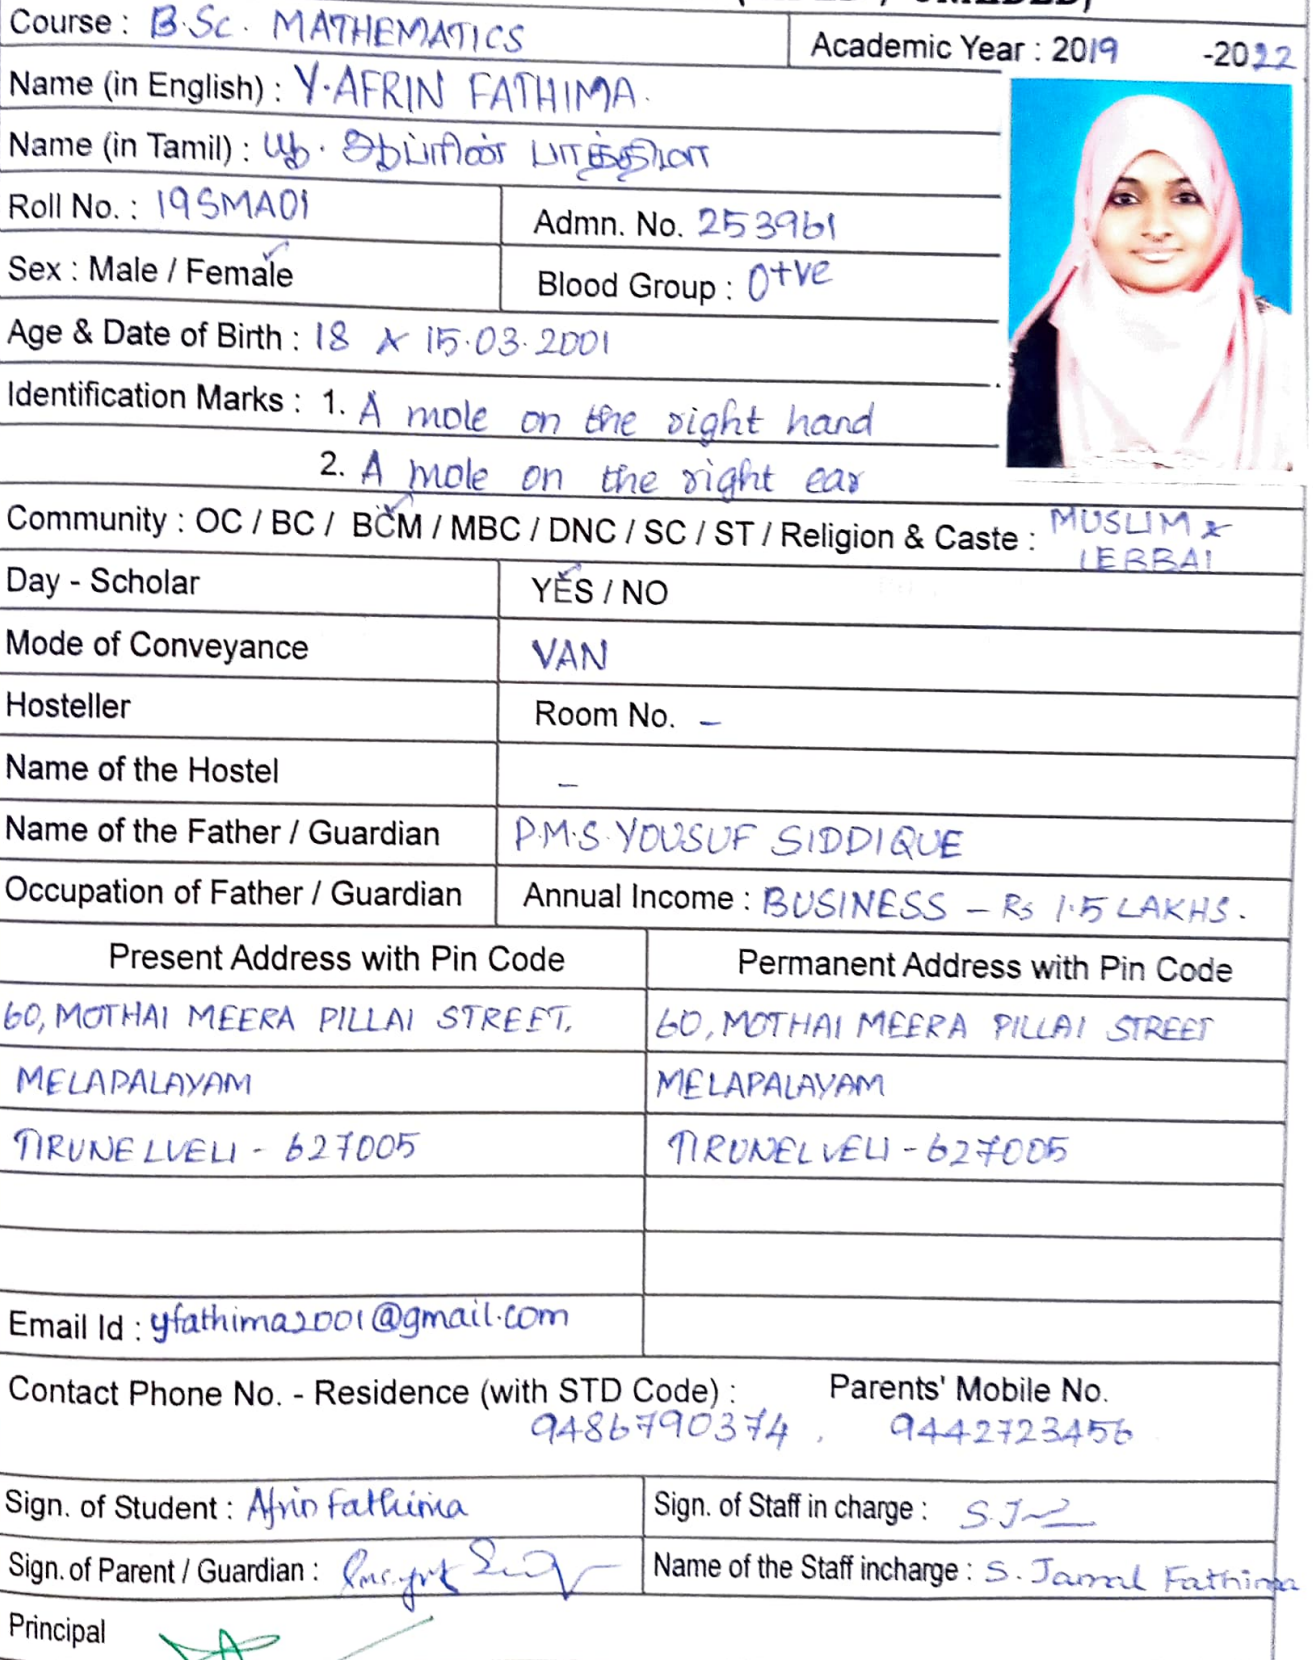 Course : B.Sc. MATHEMATICS
Academic Year : 2019 -2022
Name (in English) : Y.AFRIN FATHIMA.
Name (in Tamil) : யூ. ஆப்ரின் பாத்திமா
Roll No. : 19SMA01
Admn. No. 253961
Sex : Male / Female
Blood Group : O+ve
Age & Date of Birth : 18 & 15.03.2001
Identification Marks : 1. A mole on the right hand
2. A mole on the right ear
Community : OC / BC / BCM / MBC / DNC / SC / ST / Religion & Caste : MUSLIM &
LEBBAI
Day - Scholar YES / NO
Mode of Conveyance VAN
Hosteller Room No. –
Name of the Hostel –
Name of the Father / Guardian P.M.S. YOUSUF SIDDIQUE
Occupation of Father / Guardian Annual Income : BUSINESS – Rs 1.5 LAKHS.
Present Address with Pin Code Permanent Address with Pin Code
60, MOTHAI MEERA PILLAI STREET, 60, MOTHAI MEERA PILLAI STREET
MELAPALAYAM MELAPALAYAM
TIRUNELVELI - 627005 TIRUNELVELI - 627005
Email Id : yfathima2001@gmail.com
Contact Phone No. - Residence (with STD Code) : Parents' Mobile No.
9486790374, 9442723456
Sign. of Student : Afrin Fathima
Sign. of Staff in charge :
Sign. of Parent / Guardian :
Name of the Staff incharge : S. Jamal Fathima
Principal